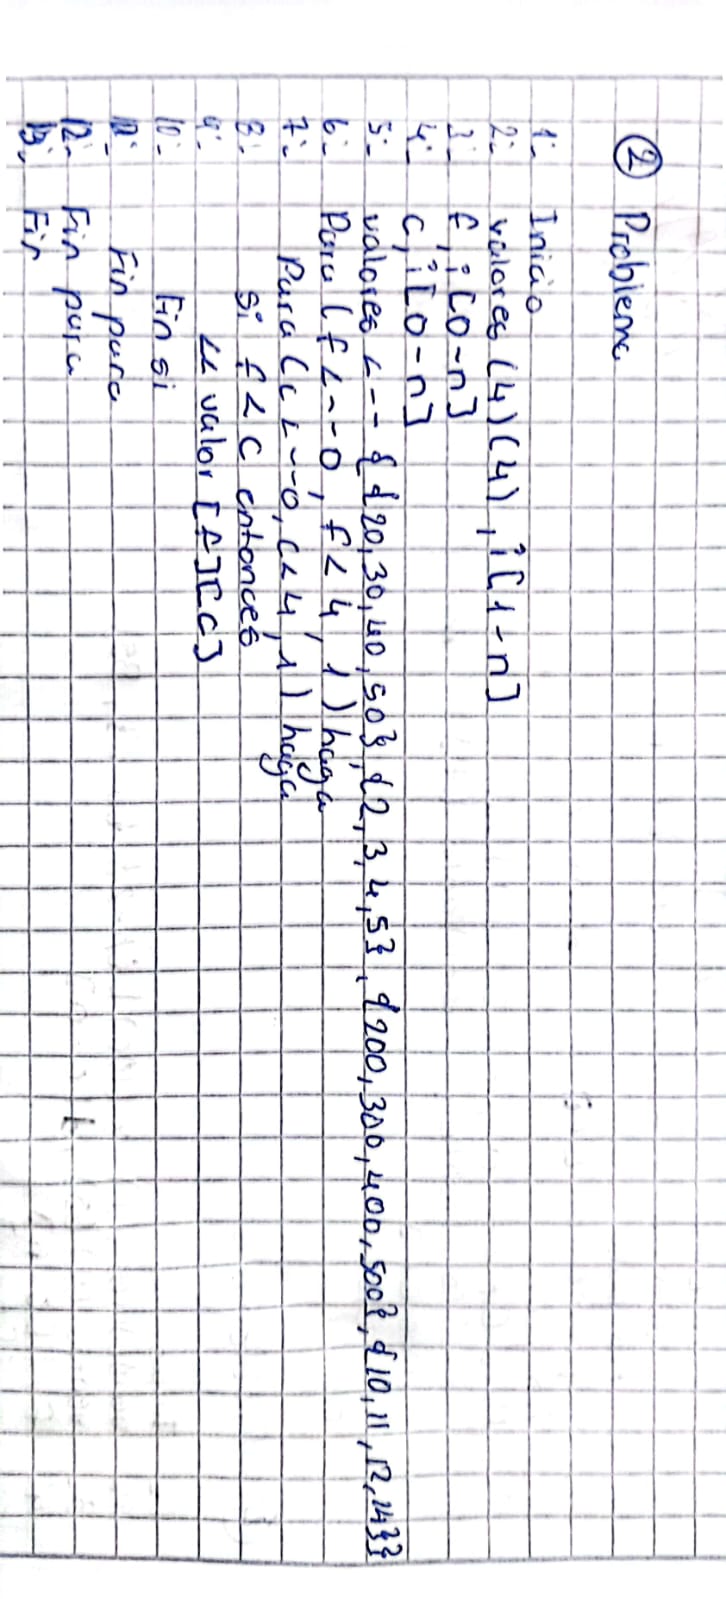 ② Problema
1: Inicio
2: valores (4)(4), i[1-n]
3: f, i[0-n]
4: c, i[0-n]
5: valores <-- {{20,30,40,50},{2,3,4,5},{200,300,400,500},{10,11,12,14}}
6: Para (f<--0, f<4, 1) haga
7: Para (c<--0, c<4, 1) haga
8: Si f<c entonces
9: << valor [f][c]
10: Fin si
11: Fin para
12: Fin para
13: Fin